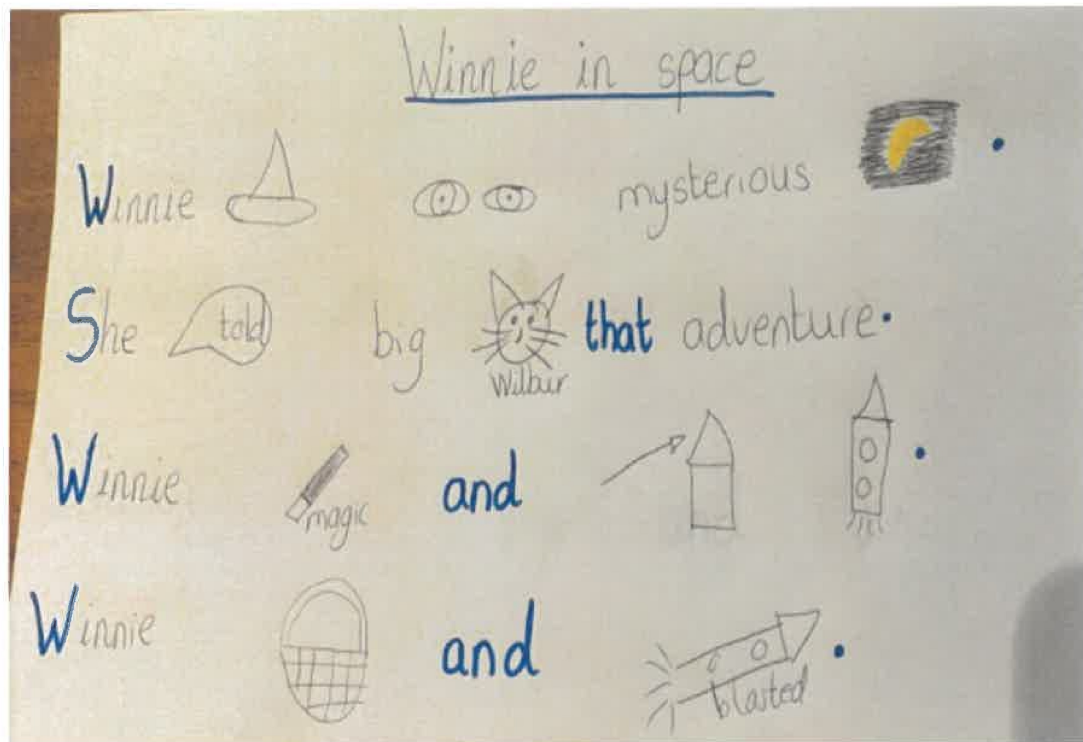 Winnie in space
Winnie mysterious .
She told big that adventure.
Wilbur
Winnie magic and .
Winnie and blasted .